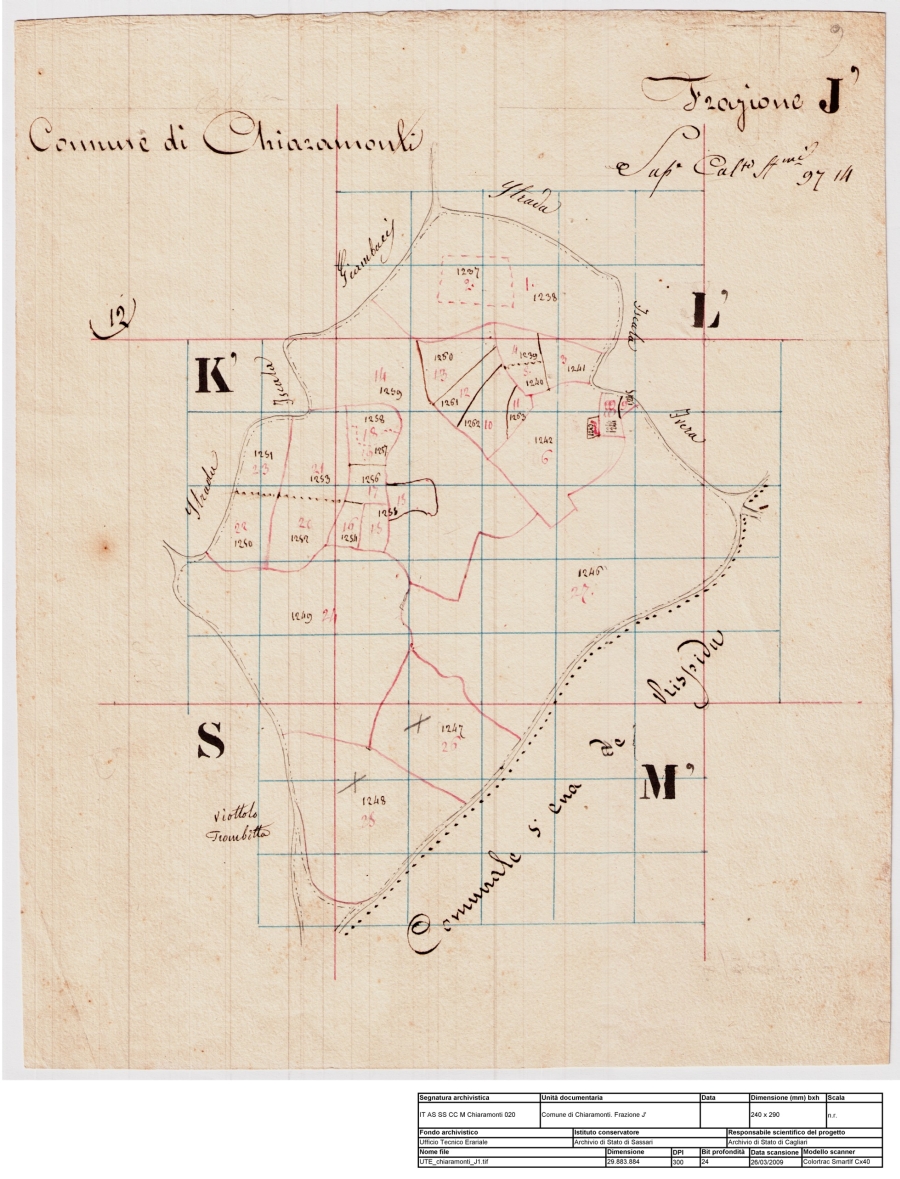 9
Frazione J'
Comune di Chiaramonti
Sup.ª Cal.to A.mi 97 14
Strada
Giambacij
12
1237
2
1
1238
L'
K'
Iscala
Iscala
14
1259
1260
13
1261
12
1262
10
4
1239
5
1240
3
1241
11
1263
1242
6
Ivera
1258
18
1257
1251
23
21
1253
1256
17
1255
15
Strada
22
1250
20
1252
16
1254
15
1246
27
1249
24
Rispida
S
1247
26
de
M'
1248
25
Viottolo
Trombitta
Comunale s'ena
Segnatura archivistica
Unità documentaria
Data
Dimensione (mm) bxh
Scala
IT AS SS CC M Chiaramonti 020
Comune di Chiaramonti. Frazione J'
240 x 290
n.r.
Fondo archivistico
Istituto conservatore
Responsabile scientifico del progetto
Ufficio Tecnico Erariale
Archivio di Stato di Sassari
Archivio di Stato di Cagliari
Nome file
Dimensione
DPI
Bit profondità
Data scansione
Modello scanner
UTE_chiaramonti_J1.tif
29.883.884
300
24
26/03/2009
Colortrac Smartlf Cx40